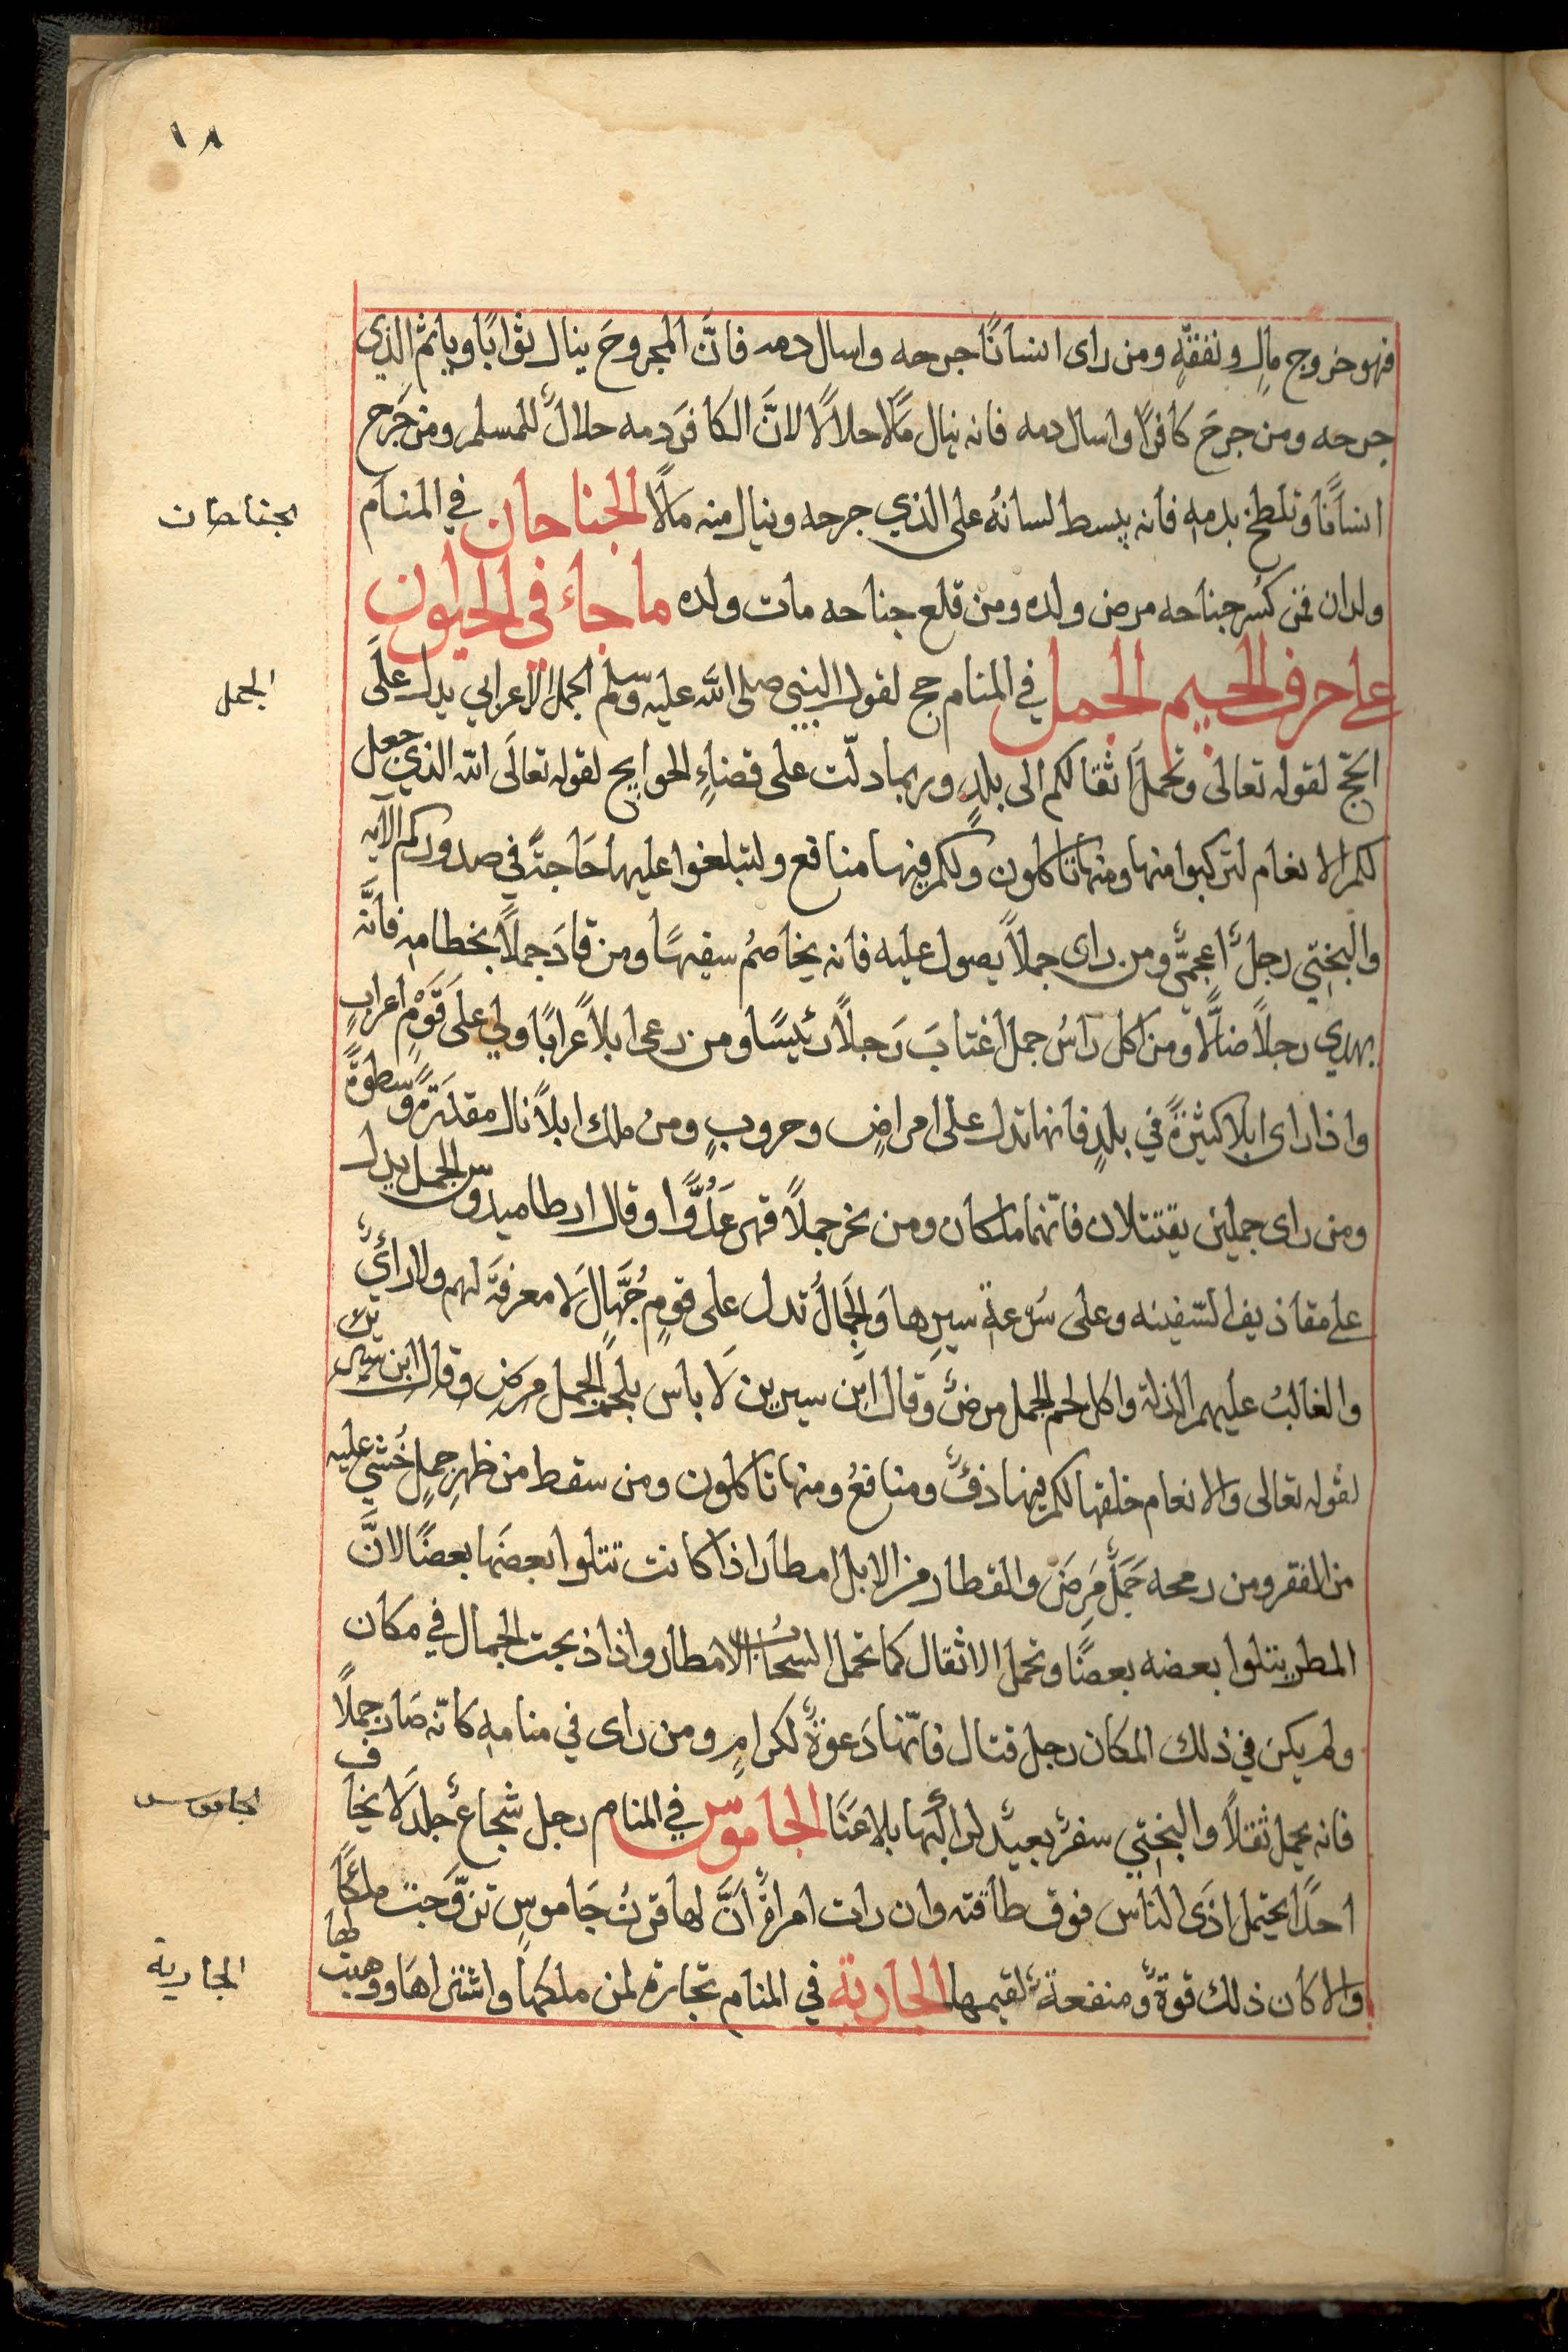 ١٨
فهو خروج مالٍ ونفقةٍ ومن راى انسانًا جرحه واسال دمه فانَّ المجروحَ ينال ثوابًا وياثم الذي
جرحه ومن جرحَ كافرًا واسال دمه فانه ينال مالًا حلالًا لانَّ الكافرَ دمه حلالٌ للمسلم ومن جَرح
انسانًا وتلطخ بدمهِ فانه يبسط لسانهُ على الذي جرحه وينال منه مالًا الجناحان في المنام
الجناحان
ولدان فمن كُسر جناحه مرض ولده ومن قلع جناحه مات ولده ما جاء في الحيوان
على حرف الجيم الجمل في المنام حج لقول النبي صلى الله عليه وسلم الجمل الاعرابي يدل علَى
الجمل
الحَجّ لقوله تعالى وتحملَ اثقالكم الى بلدٍ وربما دلّت على قضاءِ الحوايج لقوله تعالَى الله الذي جعل
لكم الانعام لتركبوا منها ومنها تاكلون ولكم فيها منافع ولتبلغوا عليها حَاجتًه في صدوركم الآيه
والبختِي رجلٌ اعجمىٌّ ومن راى جملاً يصول عليه فانه يخاصمُ سفيهًا ومن قادَ جملاً بخطامهِ فانَّه
يهدي رجلاً ضالًّا ومن اكل راسُ جمل اغتابَ رَجلاً رئيسًا ومن رعى ابلاً عرابًا ولي علَى قَوْمٍ اعرابٍ
واذا راى ابلا كثيرةً في بلدٍ فانها تدل على امراضٍ وحروبٍ ومن ملك ابلاً نال مقدَرَةً وسطوةً
ومن راى جملين يقتتلان فانّهما ملكان ومن نحر جملاً قهر عَدُوًّا وقال ارطاميدوس الجمل يدل
على مقاذيف السّفينه وعلى سُرعةِ سيرِها وَالجَمالُ تدل على قومٍ جُهَّالٍ لَا معرفةَ لهم ولا رائيٌ
والغالبُ عليهم الذلة واكل لحم الجمل مرضٌ وقال ابن سيرين لَا باس بلحم الجمل مرضٍ وقال ابن سيرين
لقوله تعالى والانعام خلقها لكم فيها دفٌ ومنافعُ ومنها تاكلون ومن سقط من ظهرِ جملٍ خُشي عليه
من الفقر ومن رمحه جَمَلٌ مَرِضَ والقطار من الابل امطار اذا كانت تتلوا بعضَها بعضًا لانَّ
المطر يتلوا بعضه بعضًا وتحمل الاثقال كما تحمل السحابُ الامطار واذا ذبحت الجمال في مكان
ولم يكن في ذلك المكان رجل قتال فانّها دَعوةٌ لكرامٍ ومن راى في منامهِ كانّه صَار جملاً
فانه يحمل ثقلاً والبختِي سفرٌ بعيدٌ لراكبها بلا عَنَا الجاموس في المنام رجل شجاعٌ جلدٌ لَا يخاف
الجاموس
احدًا يحتمل اذَى الناس فوق طاقته وان رات امراةٌ انَّ لها قرنُ جَاموسٍ تزوَّجت ملكًا
والا كان ذلك قوةً ومنفعةً لقيمها الجارية في المنام تجارة لمن ملكها واشتراها ووهبت لها
الجارية